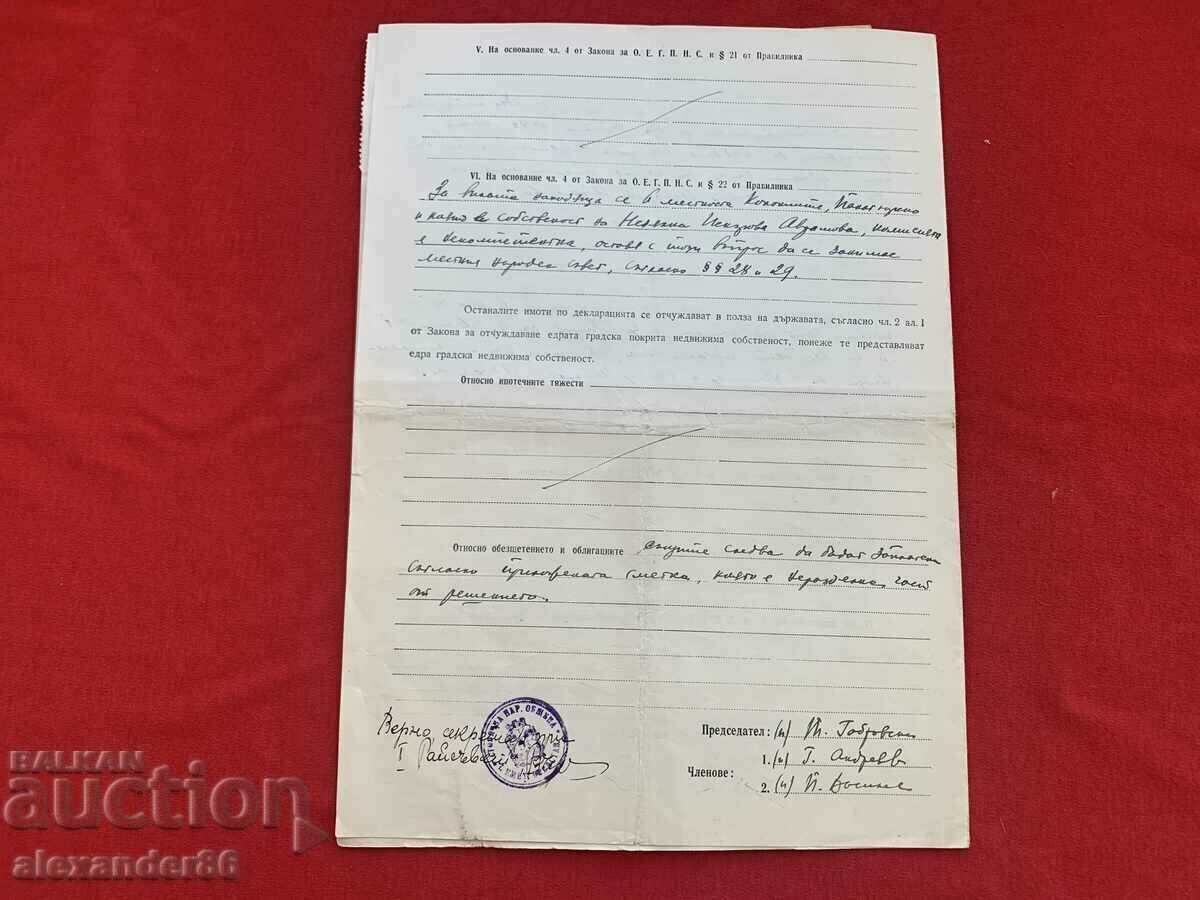 V. На основание чл. 4 от Закона за О. Е. Г. П. Н. С. и § 21 от Правилника
VI. На основание чл. 4 от Закона за О. Е. Г. П. Н. С. и § 22 от Правилника
За вилата находяща се в местноста
и като е собственост на Аврамова, комисията
е некомпетентна, оставя с този въпрос да се занимае
местния народен съвет, съгласно §§ 28 и 29.
Останалите имоти по декларацията се отчуждават в полза на държавата, съгласно чл. 2 ал. 1
от Закона за отчуждаване едрата градска покрита недвижима собственост, понеже те представляват
едра градска недвижима собственост.
Относно ипотечните тяжести
Относно обезщетението и облигациите същите следва да бъдат заплатени
съгласно приложената сметка, която е неразделна част
от решението.
Верно, секретар при
I Райсъвет
НАР. ОБЩИНА
Председател: (п)
Членове:
1. (п) Г. Андреев
2. (п) Й.
БАЛКАН
auction
alexander86